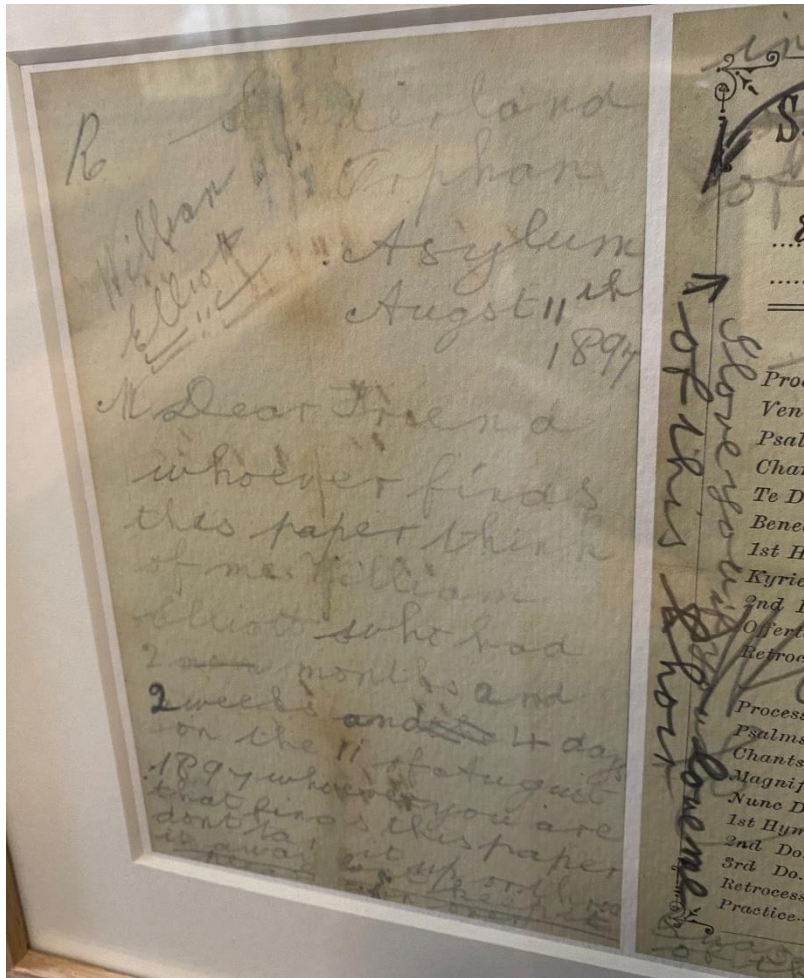 R Sunderland
Orphan
William
Elliott
Asylum
Augst 11th
1897
Dear Friend
whoever finds
this paper think
of me William
Elliott who had
2 months and
2 weeks and 4 days
on the 11 of August
1897 whoever you are
that finds this paper
dont it up
it away
in
S
of
I love you if you love me
of this
Proc
Ven
Psal
Chan
Te D
Bene
1st H
Kyrie
2nd
Offert
Retroc
Process
Psalms
Chants
Magnif
Nunc D
1st Hym
2nd Do.
3rd Do.
Retrocess
Practice